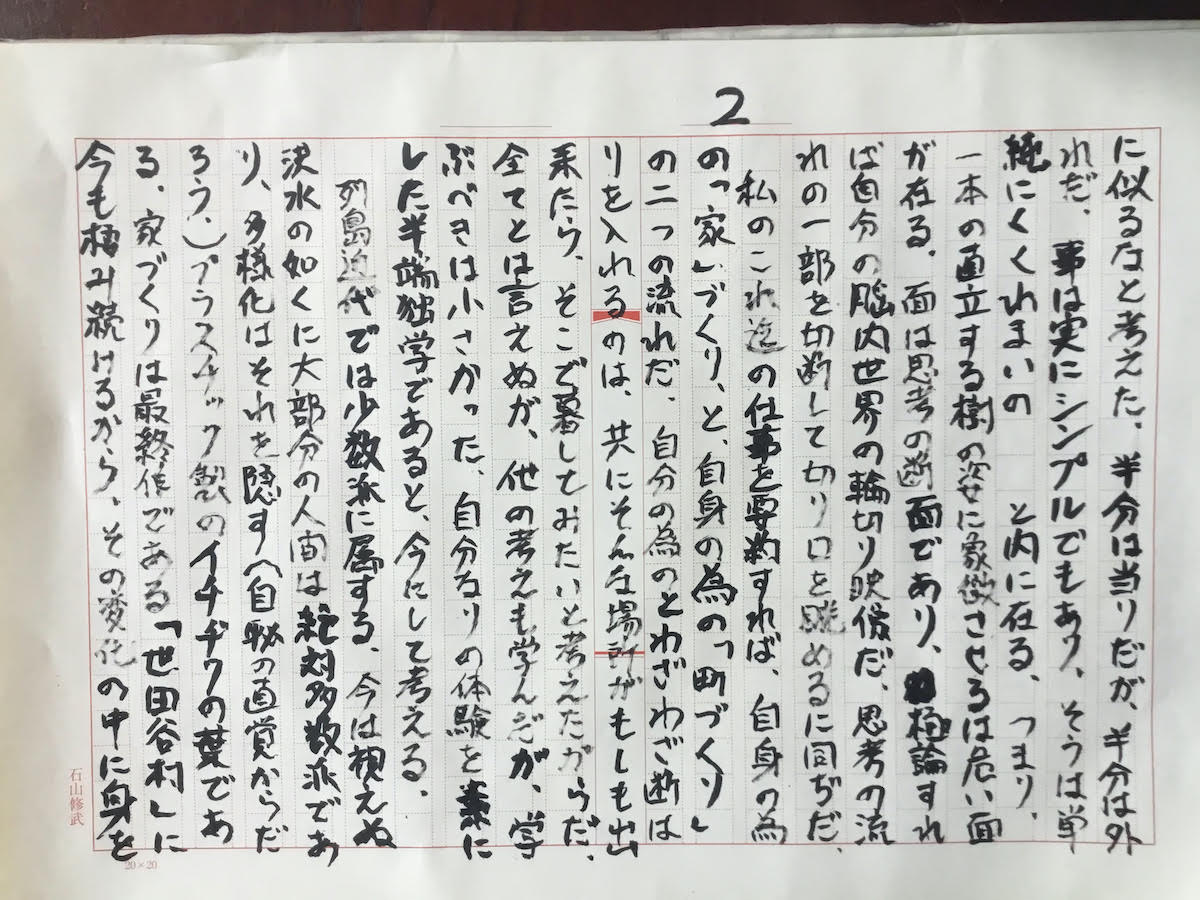 2
に似るなと考えた。半分は当りだが、半分は外
れだ。事は実にシンプルでもあり、そうは単
純にくくれまいの　と内に在る。つまり、
一本の直立する樹の姿に象徴させるは危い面
が在る。面は思考の断面であり、極論すれ
ば自分の脳内世界の輪切り映像だ。思考の流
れの一部を切断して切り口を眺めるに同ぢだ。
私のこれ迄の仕事を要約すれば、自身の為
の「家」づくり、と、自身の為の「町づくり」
の二つの流れだ。自分の為のとわざわざ断は
りを入れるのは、共にそんな場所がもしも出
来たら、そこで暮しておたいと考えたからだ。
全てとは言えぬが、他の考えも学んだが、学
ぶべきは小さかった。自分なりの体験を素に
した半端独学であると、今にして考える。
列島近代では少数派に属する。今は視えぬ
洪水の如くに大部分の人間は絶対多数派であ
り、多様化はそれを隠す（自秘の直覚からだ
ろう。）プラスチック製のイチヂクの葉であ
る。家づくりは最終作である「世田谷村」に
今も棲み続けるから、その変化の中に身を
石山修武
20×20